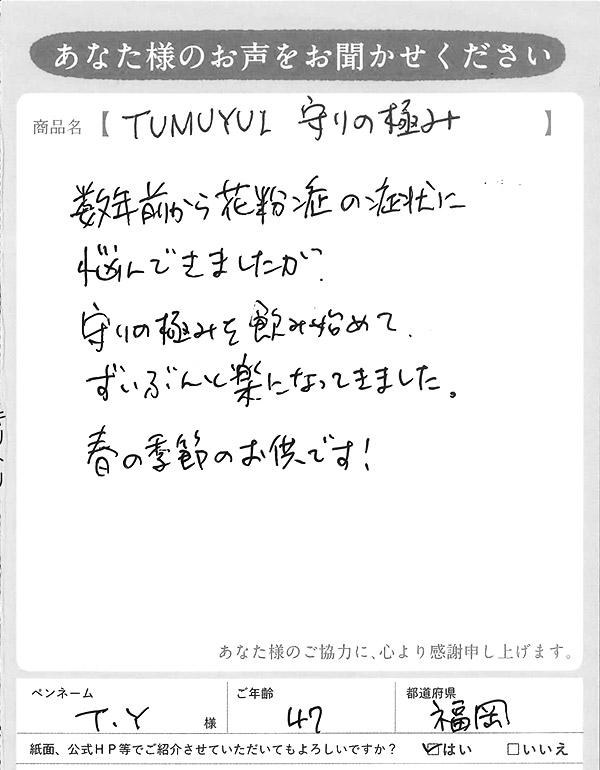 あなた様のお声をお聞かせください
商品名【 TUMUYUI 守りの極み 】
数年前から花粉症の症状に
悩んできましたが、
守りの極みを飲み始めて、
ずいぶんと楽になってきました。
春の季節のお供です!
あなた様のご協力に、心より感謝申し上げます。
ペンネーム ご年齢 都道府県
T.Y 様 47 福岡
紙面、公式HP等でご紹介させていただいてもよろしいですか? ☑はい □いいえ